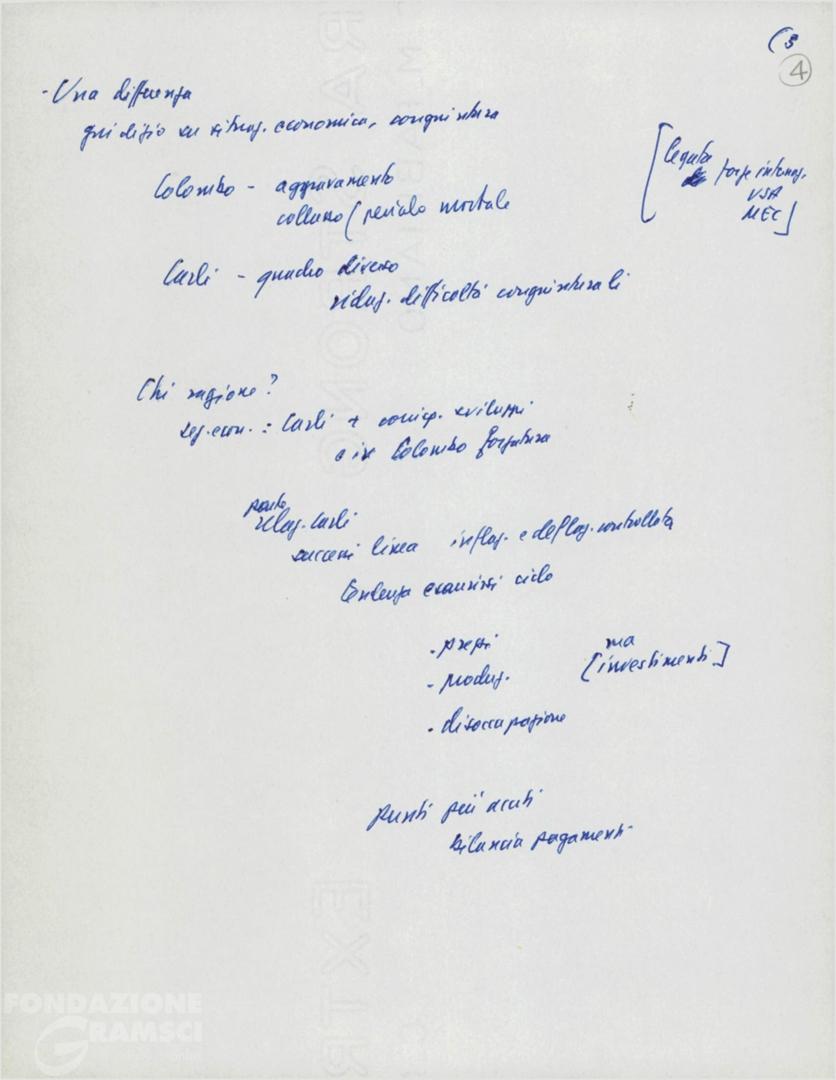 (3
4
- Una differenza
giudizio su situaz. economica, congiuntura
[legata
forze internaz.
USA
MEC]
Colombo - aggravamento
collasso (pericolo mortale
Carli - quadro diverso
riduz. difficoltà congiunturali
Chi ragione?
seg. econ.: Carli + conseg. sviluppi
e in Colombo forzatura
parte
relaz. Carli
successi linea inflaz. e deflaz. controllata
tendenza esaurirsi ciclo
- prezzi
ma
- produz. [investimenti]
- disoccupazione
Punti più acuti
bilancia pagamenti
FONDAZIONE
GRAMSCI